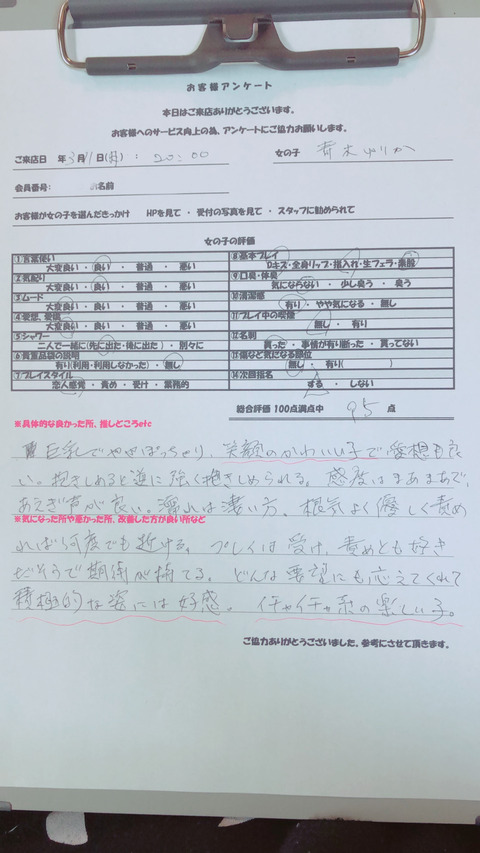 お客様アンケート
本日はご来店ありがとうございます。
お客様へのサービス向上の為、アンケートにご協力お願いします。
ご来店日 年 3月 11日(月) : 20:00 女の子 青木ゆりか
会員番号: お名前
お客様が女の子を選んだきっかけ HPを見て ・ 受付の写真を見て ・ スタッフに勧められて
女の子の評価
①言葉使い
大変良い ・ 良い ・ 普通 ・ 悪い
②気配り
大変良い ・ 良い ・ 普通 ・ 悪い
③ムード
大変良い ・ 良い ・ 普通 ・ 悪い
④愛想、愛嬌
大変良い ・ 良い ・ 普通 ・ 悪い
⑤シャワー
二人で一緒に(先に出た・後に出た) ・ 別々に
⑥貴重品袋の説明
有り(利用・利用しなかった) ・ 無し
⑦プレイスタイル
恋人感覚 ・ 責め ・ 受け ・ 業務的
⑧基本プレイ
Dキス・全身リップ・指入れ・生フェラ・素股
⑨口臭・体臭
気にならない ・ 少し臭う ・ 臭う
⑩清潔感
有り ・ やや気になる ・ 無し
⑪プレイ中の喫煙
無し ・ 有り
⑫名刺
貰った ・ 事情が有り断った ・ 貰ってない
⑬傷など気になる部位
無し ・ 有り( )
⑭次回指名
する ・ しない
総合評価 100点満点中 95 点
※具体的な良かった所、推しどころetc
巨乳でややぽっちゃり、笑顔のかわいい子で愛想も良
い。抱きしめると逆に強く抱きしめられる。感度はまあまあで、
あえぎ声が良い。濡れは凄い方。根気よく優しく責め
※気になった所や悪かった所、改善した方が良い所など
れば何度でも逝ける。プレイは受け、責めとも好き
だそうで期待が持てる。どんな要望にも応えてくれて
積極的な姿には好感。イチャイチャ系の楽しい子。
ご協力ありがとうございました。参考にさせて頂きます。